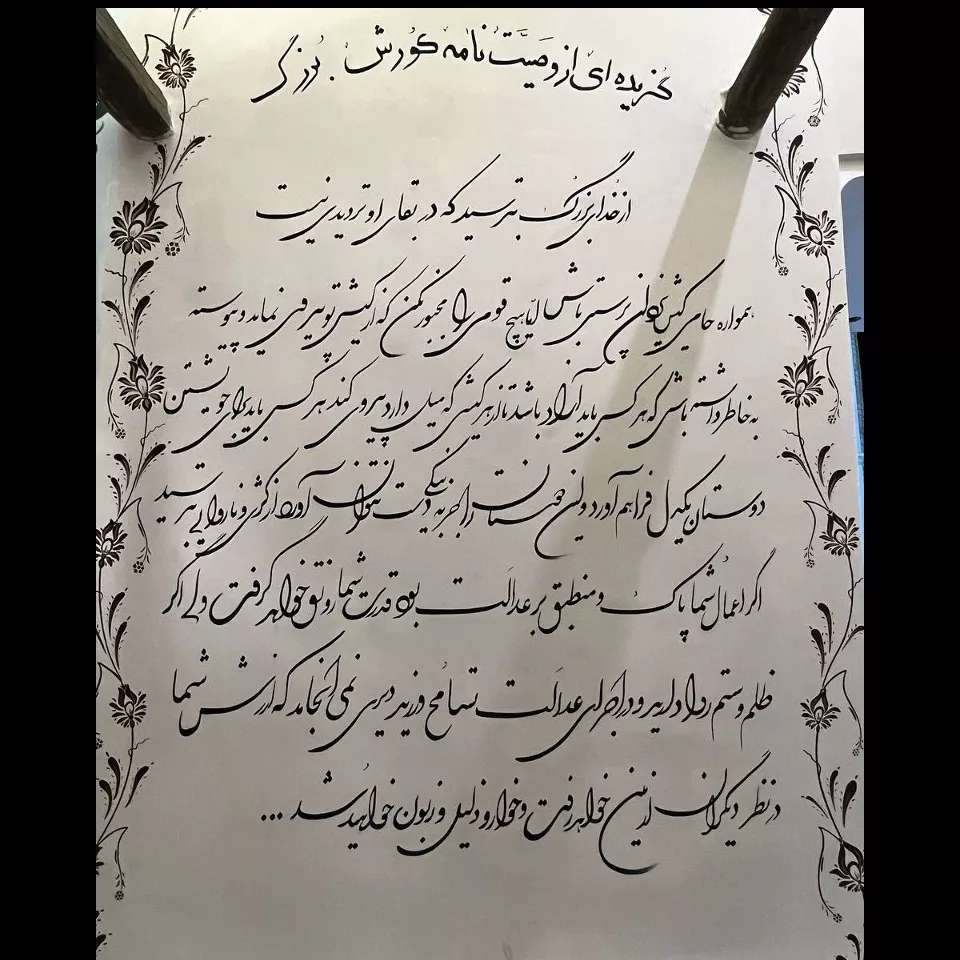 گزیده ای از وصیّت نامه کورش بزرگ.
از خدای بزرگ بترسید که در بقای او تردیدی نیست
همواره حامی کیش یزدان پرستی باش امّا هیچ قومی را مجبور مکن که از کیش تو پیروی نماید و پیوسته
به خاطر داشته باش که هر کسی باید آزاد باشد تا از هر کیشی که میل دارد پیروی کند هر کس باید برای خویشتن
دوستان یکدل فراهم آورد و این دوستان را جز به نیکی بدست نتوان آورد از کژی و ناروایی بترسید
اگر اعمال شما پاک و منطبق بر عدالت بود قدرت شما رونق خواهد گرفت ولی اگر
ظلم و ستم روا دارید و در اجرای عدالت تسامح ورزید دیری نمی انجامد که ارزش شما
در نظر دیگران از بین خواهد رفت و خوار و ذلیل و زبون خواهید شد ...